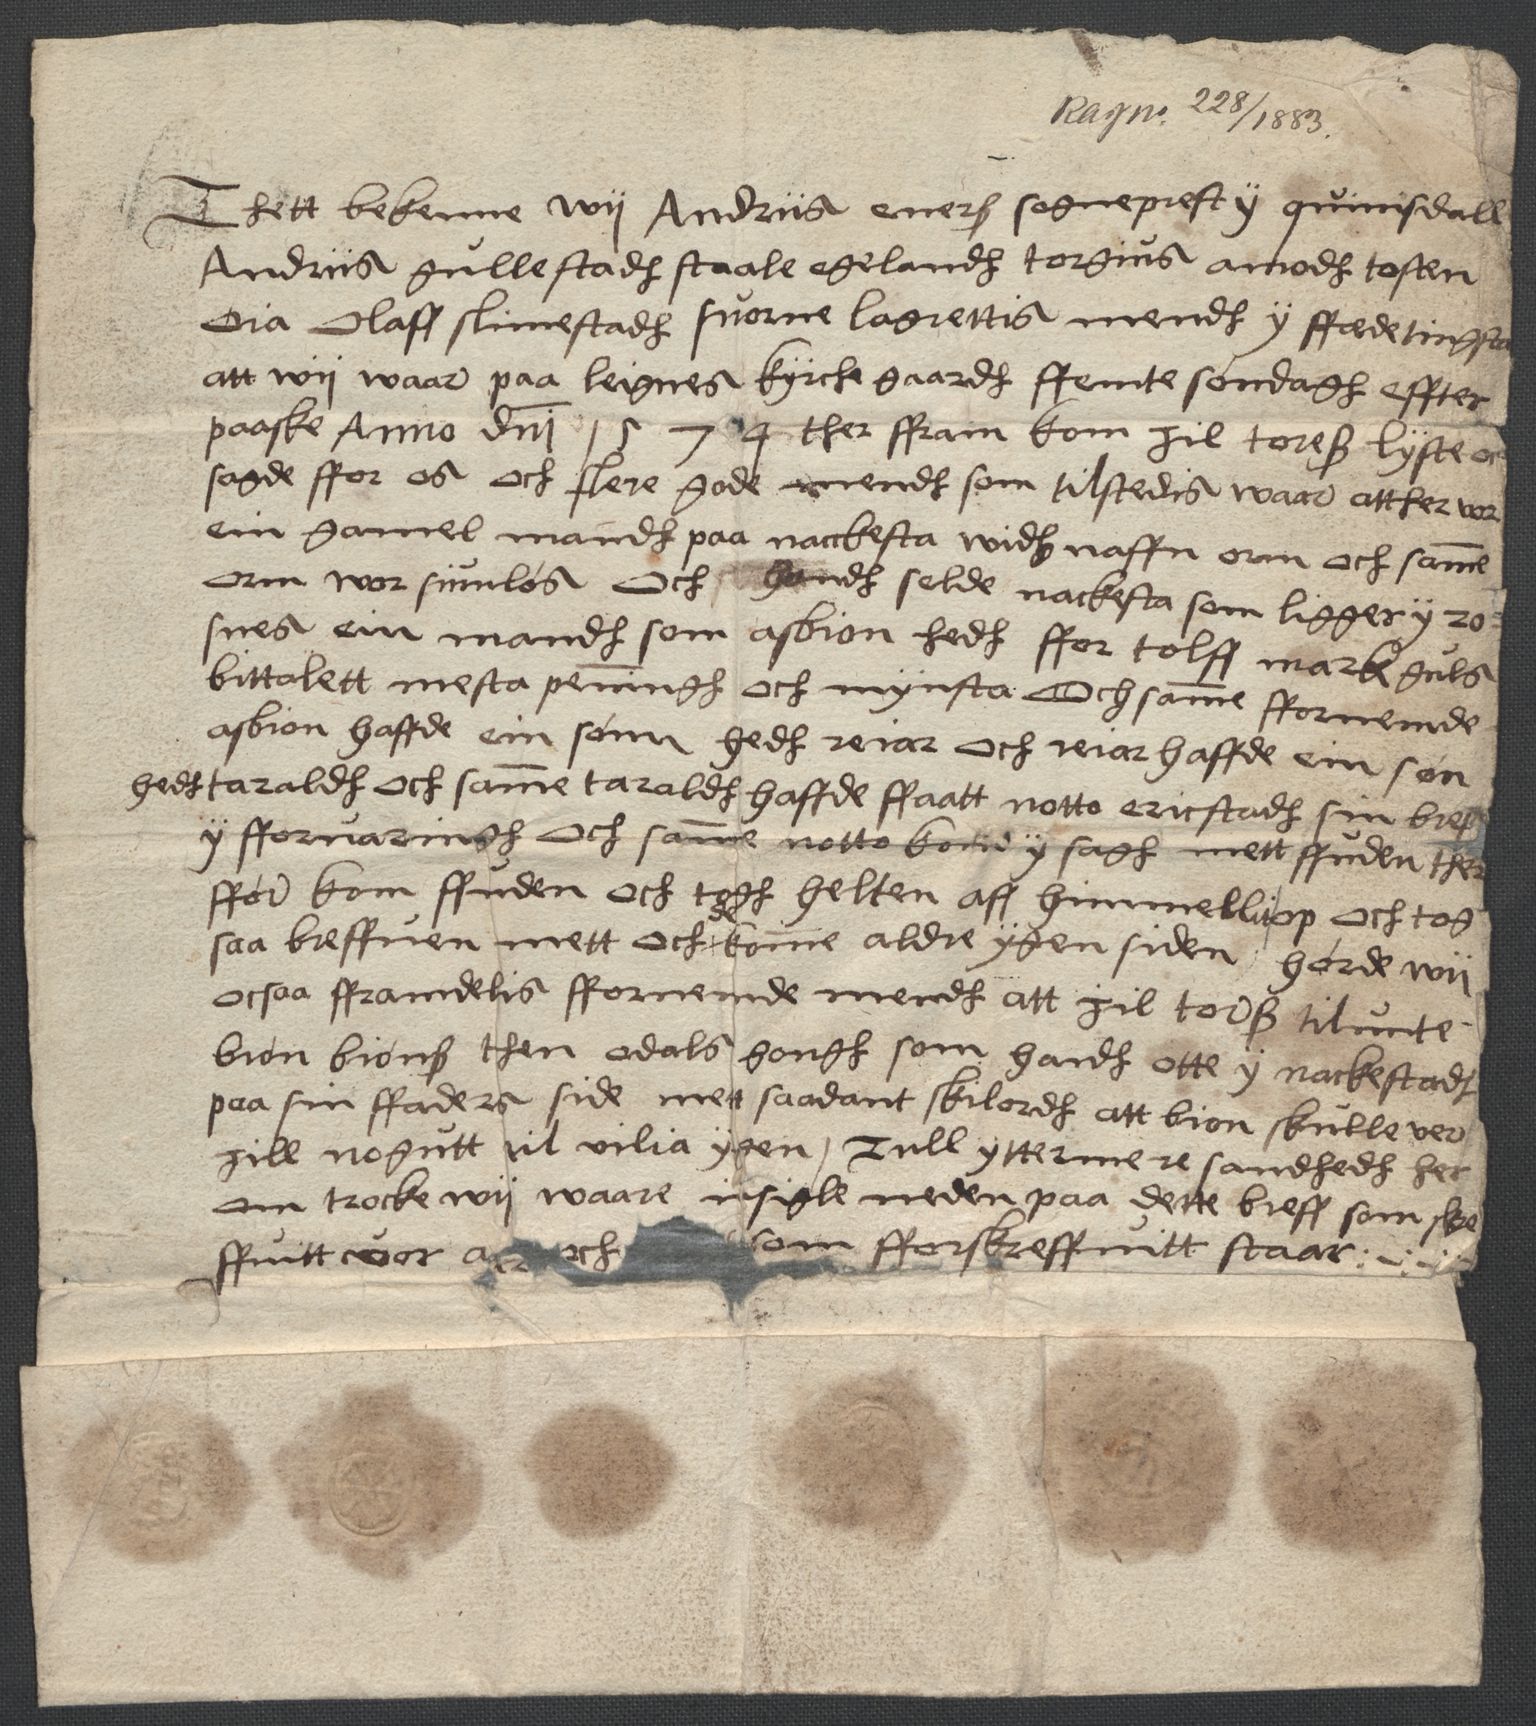 Ragno. 228/1883.
Thett bekenne wij Andriis enerß sogneprest ÿ quinisdall
Andriis gullestadh staale egelandh torgius amodh tosten
oia Olaff slimestadh suorne lagrettis mendh ÿ ffædetingsta
att wij waar paa leignes kÿrche gaardh ffemte søndagh effter
paaske Anno dni 1574 ther ffram kom jil toreß lÿste oc
sagde ffor os och flere gode mendh som tilstedis waar att her vor
ein gamel mandh paa nackesta widh naffn orm och same
orm wor siunløs Och handh selde nackesta som ligger ÿ ro=
snes ein mandh som asbion hedh ffor tolff mark guls
bittalett mesta peningh och mÿnsta Och same ffornemde
asbion haffde ein sønn hedh reiar och reiar haffde ein søn
hedh taraldh och same taraldh haffde ffaatt notto ericstadh sin breff
ÿ fforuaringh och same notto kom ÿ sagh mett ffuden ther
ffor kom ffuden och togh helten aff himmelliop och tog
saa breffuen mett och de kome aldre ÿgen siden hørde wij
ocsaa fframdelis ffornemde mendh att jil torß til unte
biøn biønß then odals gongh som handh otte ÿ nackestadh
paa sin ffaders side mett saadant skilordh att bion skulle ver
jill nogutt til vilia ÿgen / Till ÿttermere sandhedh her
om trocke wij waare insigle neden paa dette breff som skre
ffuitt vor och som fforskreffuitt staar